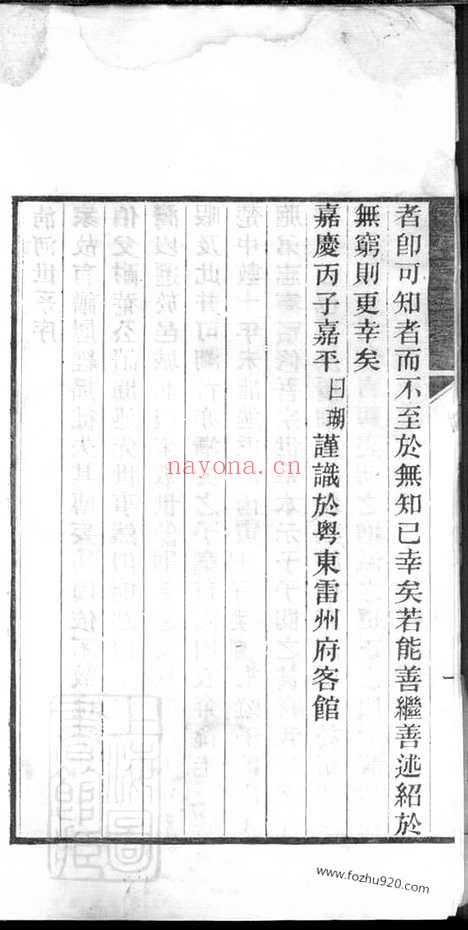 者即可知者而不至於無知已幸矣若能善繼善述紹於
無窮則更幸矣
嘉慶丙子嘉平月瑚謹識於粤東雷州府客館
nayona.cn
www.fozhu920.com